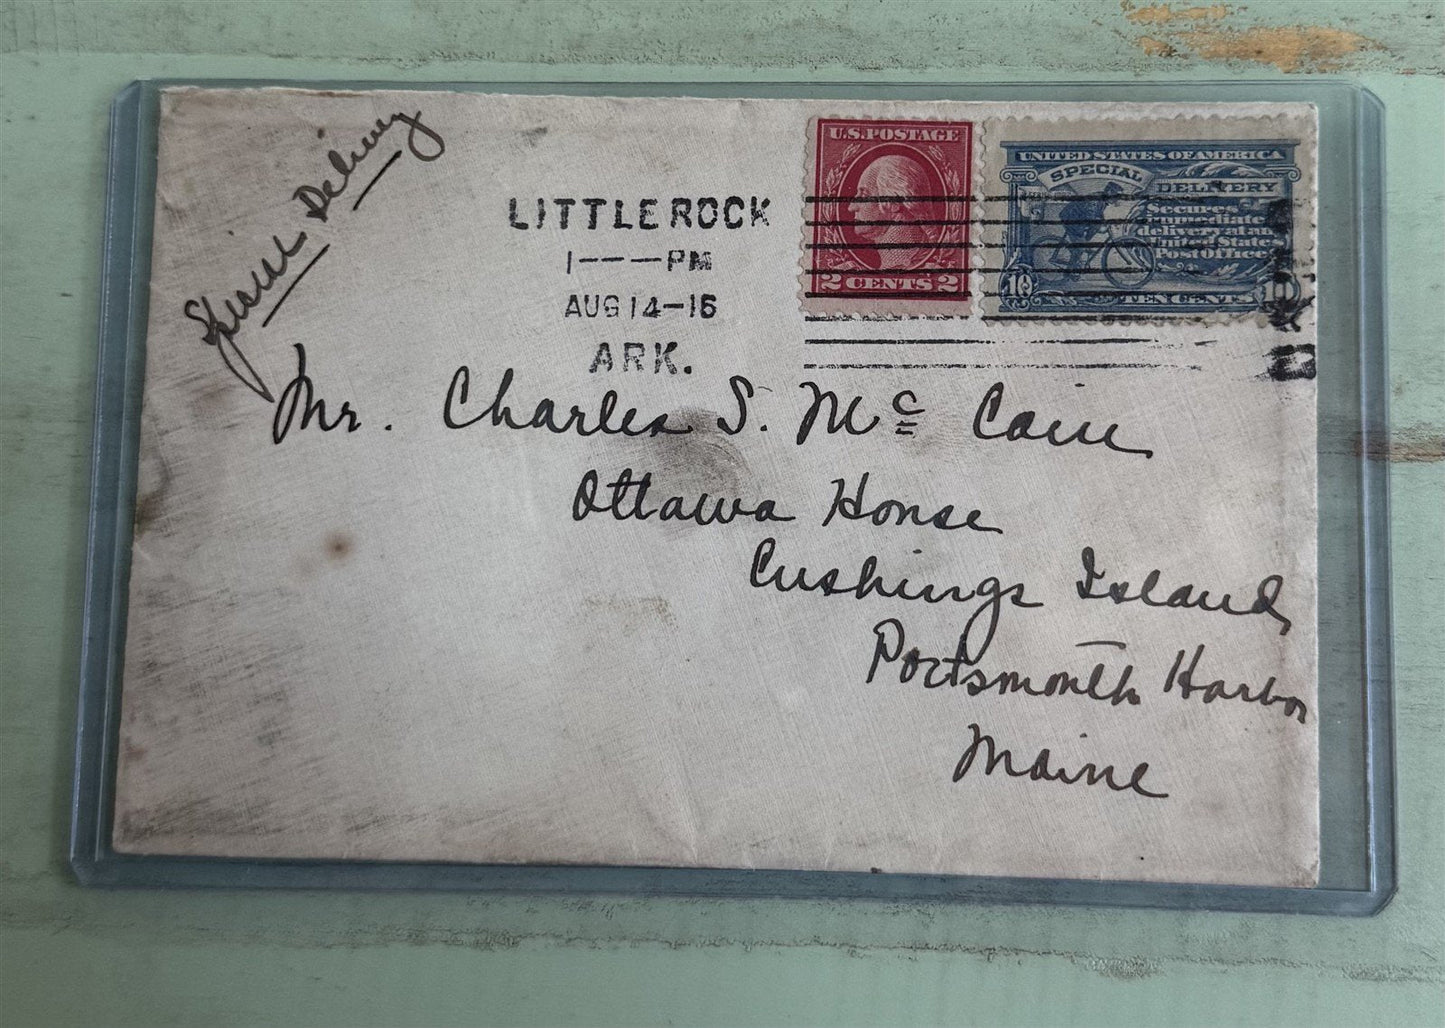 Special Delivery
LITTLE ROCK
1---PM
AUG 14-16
ARK.
U.S. POSTAGE
2 CENTS 2
UNITED STATES OF AMERICA
SPECIAL DELIVERY
Secures
immediate
delivery at an
United States
Post Office
10 TEN CENTS 10
Mr. Charles S. Mc Cain
Ottawa House
Cushings Island,
Portsmouth Harbor
Maine